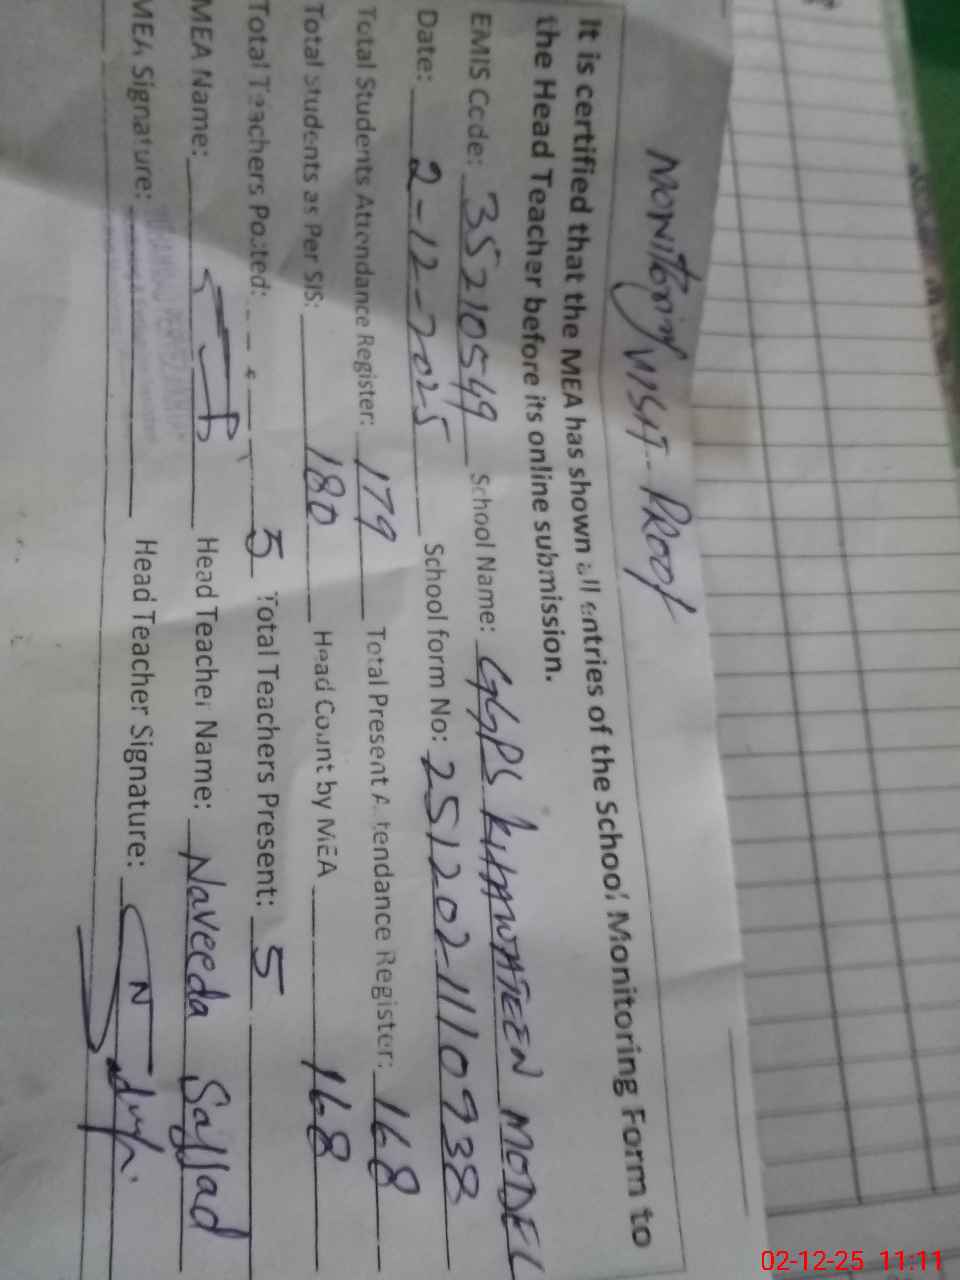 Monitoring VISIT - PROOF
It is certified that the MEA has shown all entries of the School Monitoring Form to
the Head Teacher before its online submission.
EMIS Code: 35210549 School Name: GGPS KHAWATEEN MODEL
Date: 2-12-2025 School form No: 251202-1110938
Total Students Attendance Register: 179 Total Present Attendance Register: 168
Total Students as Per SIS: 180 Head Count by MEA 168
Total Teachers Posted: 5 Total Teachers Present: 5
MEA Name: Head Teacher Name: Naveeda Sajjad
MEA Signature: Head Teacher Signature:
02-12-25 11:11